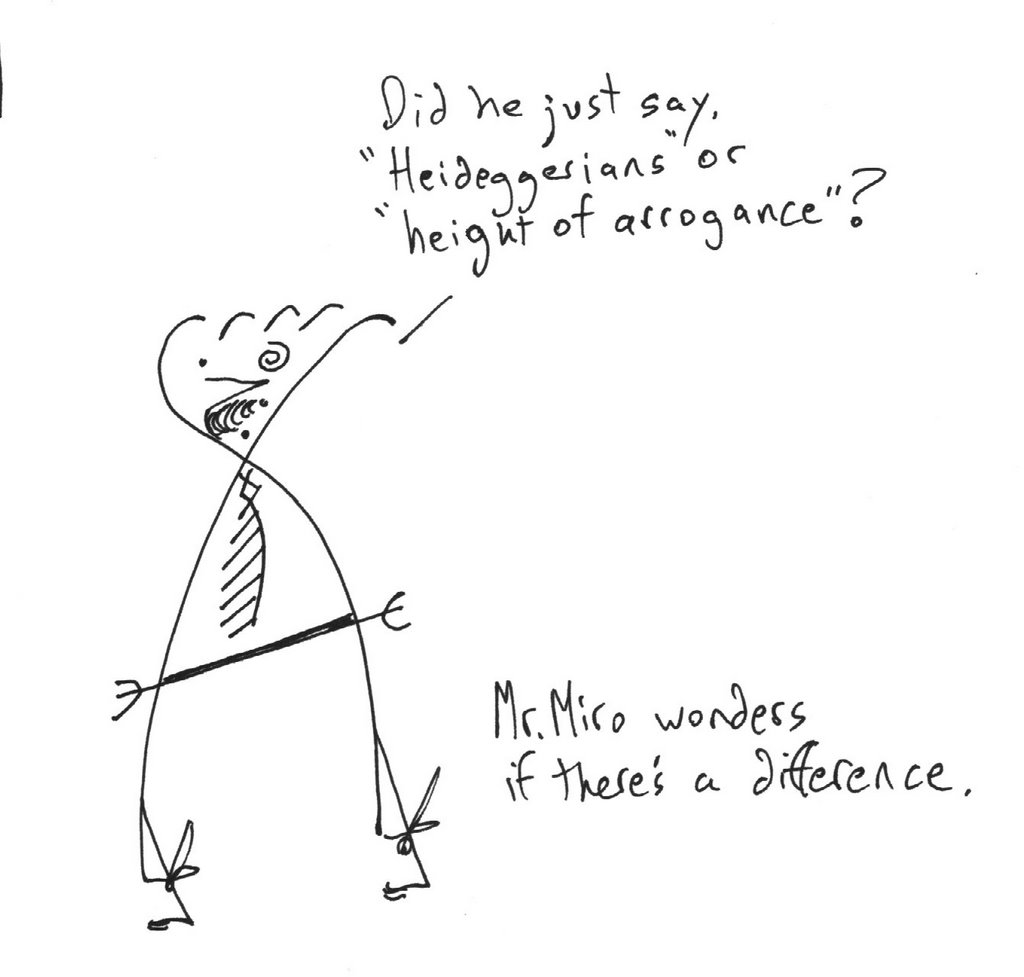 Did he just say,
"Heideggerians" or
"height of arrogance"?
Mr. Miro wonders
if there's a difference.